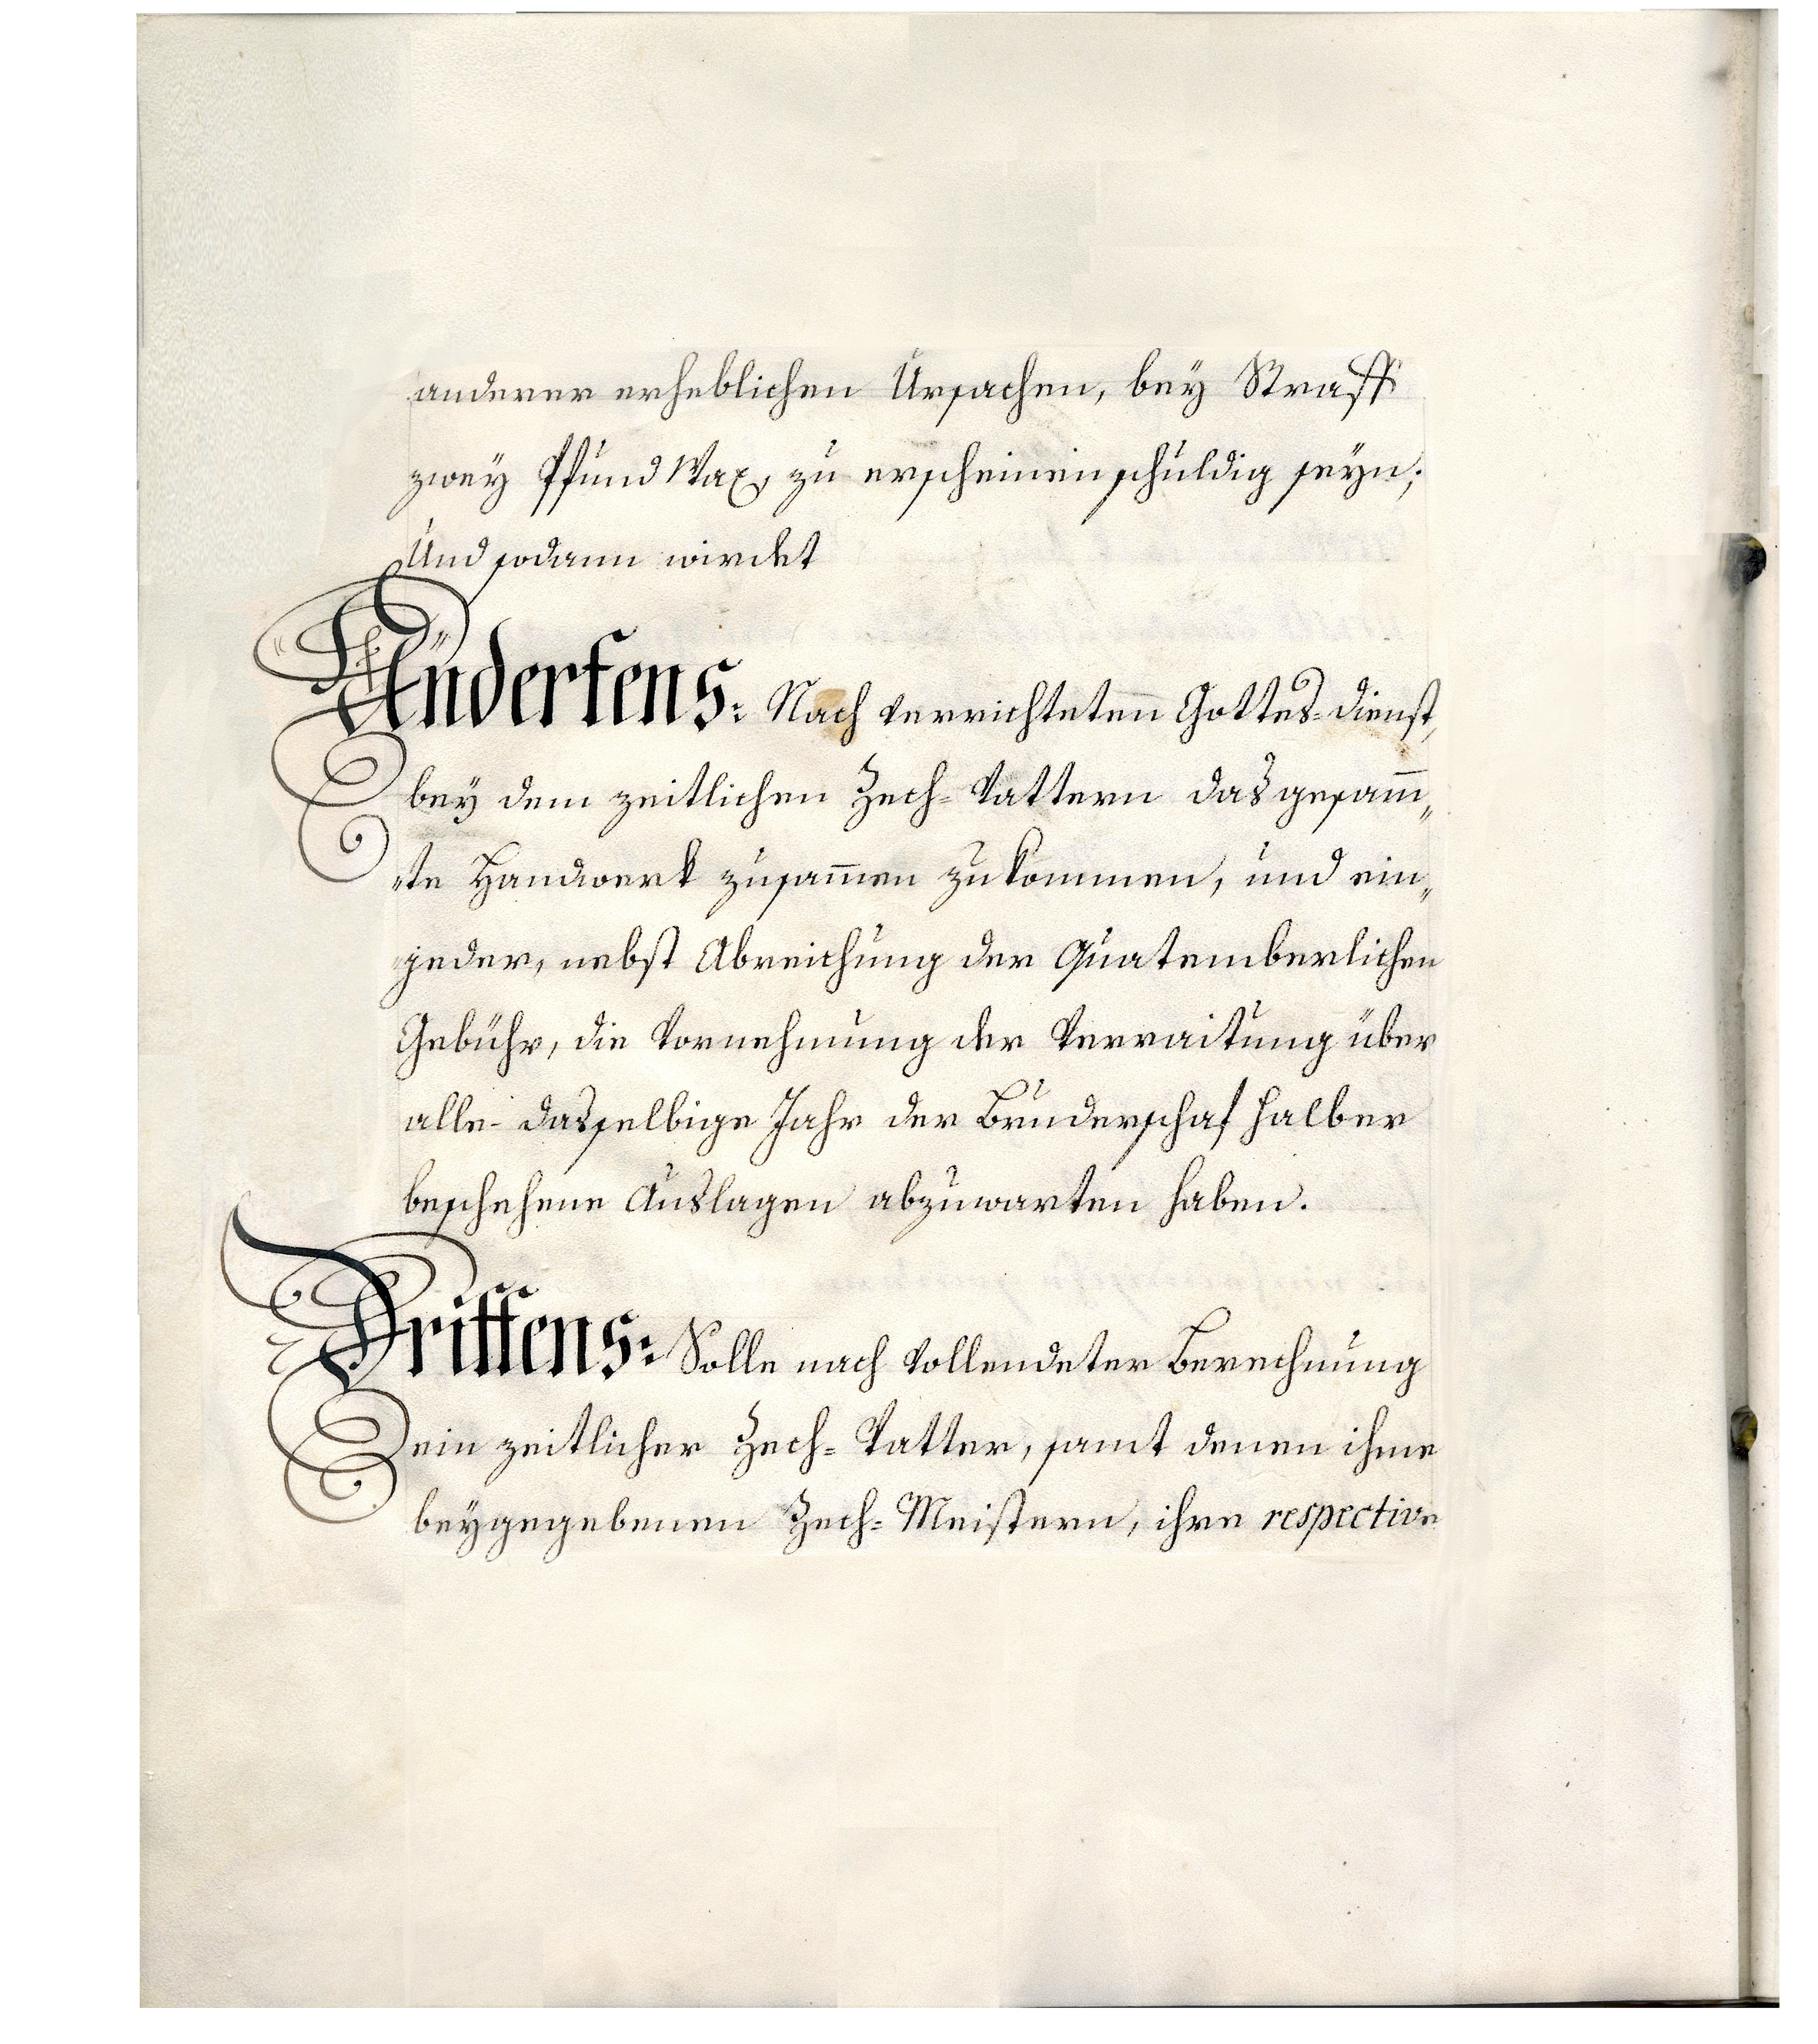 anderer erheblichen Ursachen, bey Straff
zwey Pfund Wax, zu erscheinen schuldig seyn;
Und sodann wirdet
Andertens: Nach verrichteten Gottes-dienst,
bey dem zeitlichen Zech-Vattern das gesam̄„
„te Handwerk zusam̄en zukommen, und ein„
jeder, nebst Abreichung der Quatemberlichen
Gebühr, die Vornehmung der Verraitung über
alle- dasselbige Jahr der Bruderschaf halber
beschehene Auslagen abzuwarten haben.
Drittens: Solle nach vollendeter Berechnung
ein zeitlicher Zech-Vatter, samt denen ihme
beygegebenen Zech-Meistern, ihre respective